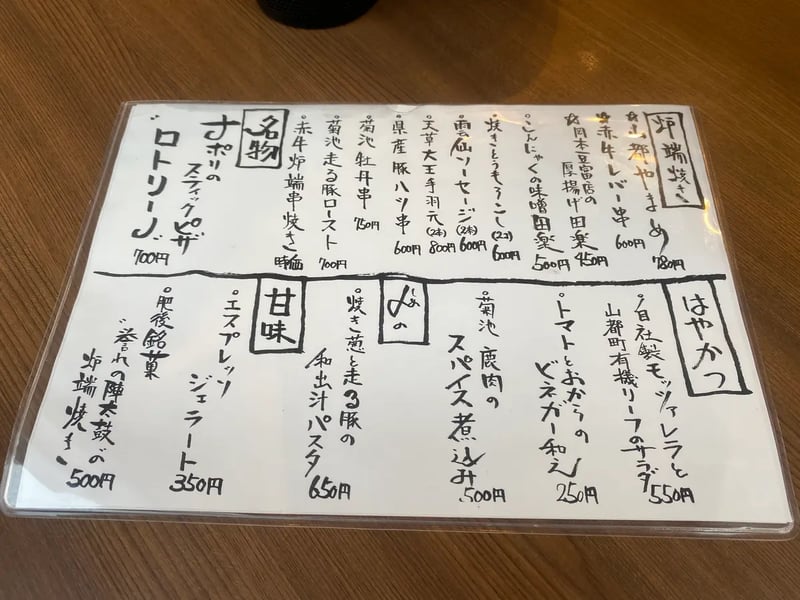 炉端焼き
☆山都やまめ 780円
☆赤牛レバー串 600円
☆岡本豆富店の
厚揚げ田楽 450円
・こんにゃくの味噌田楽 500円
・焼きとうもろこし(2コ) 600円
・雲仙ソーセージ(2本) 600円
・天草大王手羽元(2本) 800円
・県産豚ハツ串 600円
・菊池 牡丹串 750円
・菊池 走る豚ロースト 700円
・赤牛炉端串焼き 時価
名物
ナポリの
スティックピザ
"ロトリーノ" 700円
はやかつ
・自社製モッツァレラと
山都町有機リーフのサラダ 550円
・トマトとおからの
ビネガー和え 250円
・菊池 鹿肉の
スパイス煮込み 500円
〆の
しめ
・焼き葱と走る豚の
和出汁パスタ 650円
甘味
・エスプレッソ
ジェラート 350円
・肥後銘菓
"誉れの陣太鼓"の
炉端焼き 500円